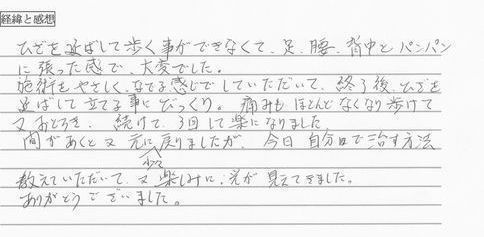 経緯と感想
ひざを延ばして歩く事ができなくて、足、腰、背中とパンパン
に張った感で、大変でした。
施術をやさしく、なでる感じでしていただいて、終了後、ひざを
延ばして立てる事にびっくり。痛みもほとんどなくなり歩けて
又おどろき、続けて、3回して楽になりました
間があくと又元に戻りましたが、今日自分で治す方法
少々
教えていただいて、又楽しみに、光が見えてきました。
ありがとうございました。